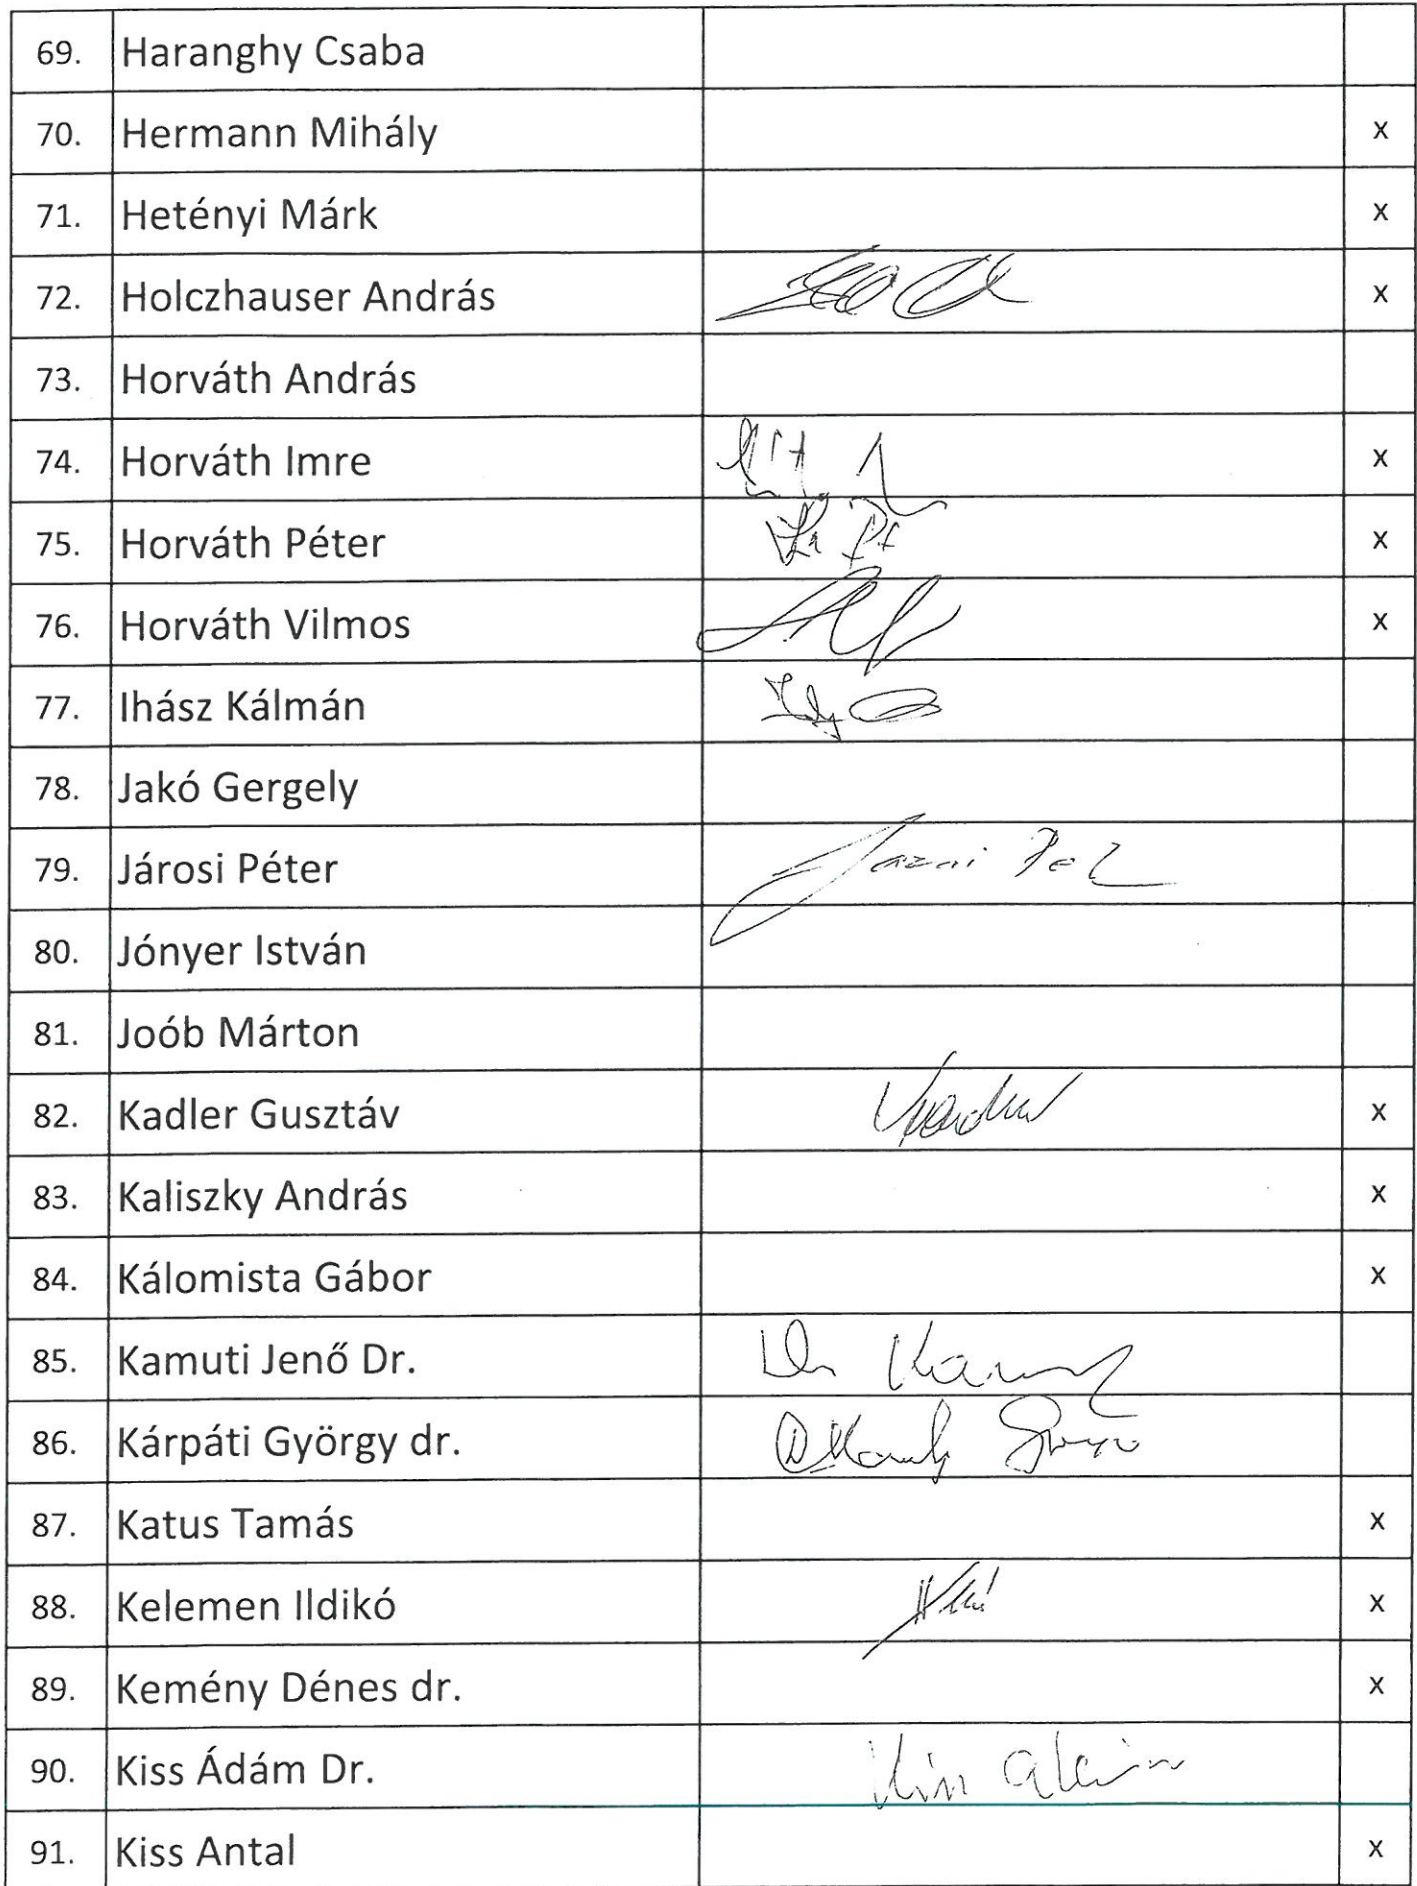 69. Haranghy Csaba
70. Hermann Mihály x
71. Hetényi Márk x
72. Holczhauser András x
73. Horváth András
74. Horváth Imre x
75. Horváth Péter x
76. Horváth Vilmos x
77. Ihász Kálmán
78. Jakó Gergely
79. Járosi Péter
80. Jónyer István
81. Joób Márton
82. Kadler Gusztáv x
83. Kaliszky András x
84. Kálomista Gábor x
85. Kamuti Jenő Dr.
86. Kárpáti György dr.
87. Katus Tamás x
88. Kelemen Ildikó x
89. Kemény Dénes dr. x
90. Kiss Ádám Dr.
91. Kiss Antal x